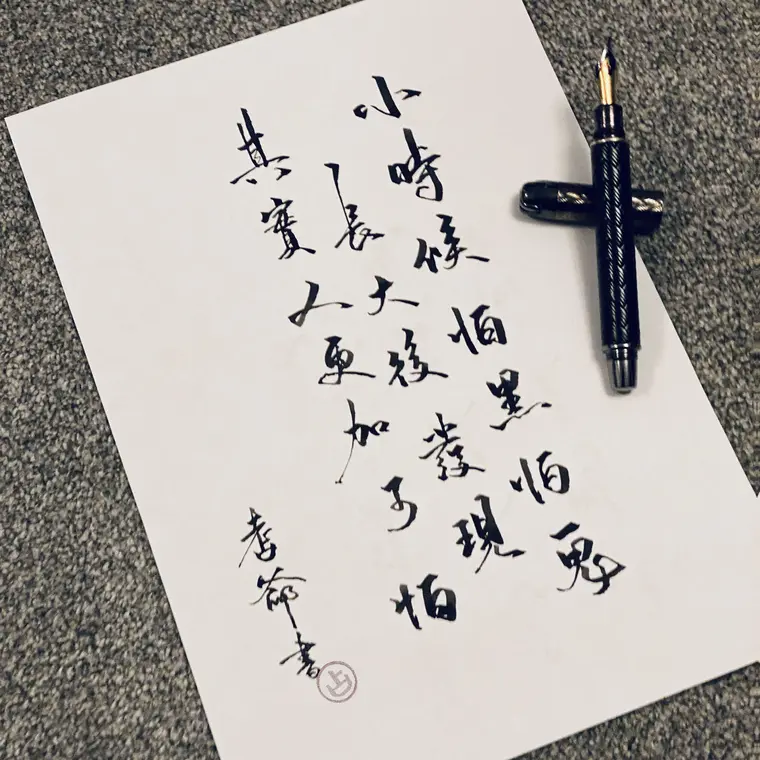 小時候怕黑怕鬼
長大後發現
其實人更加可怕
書